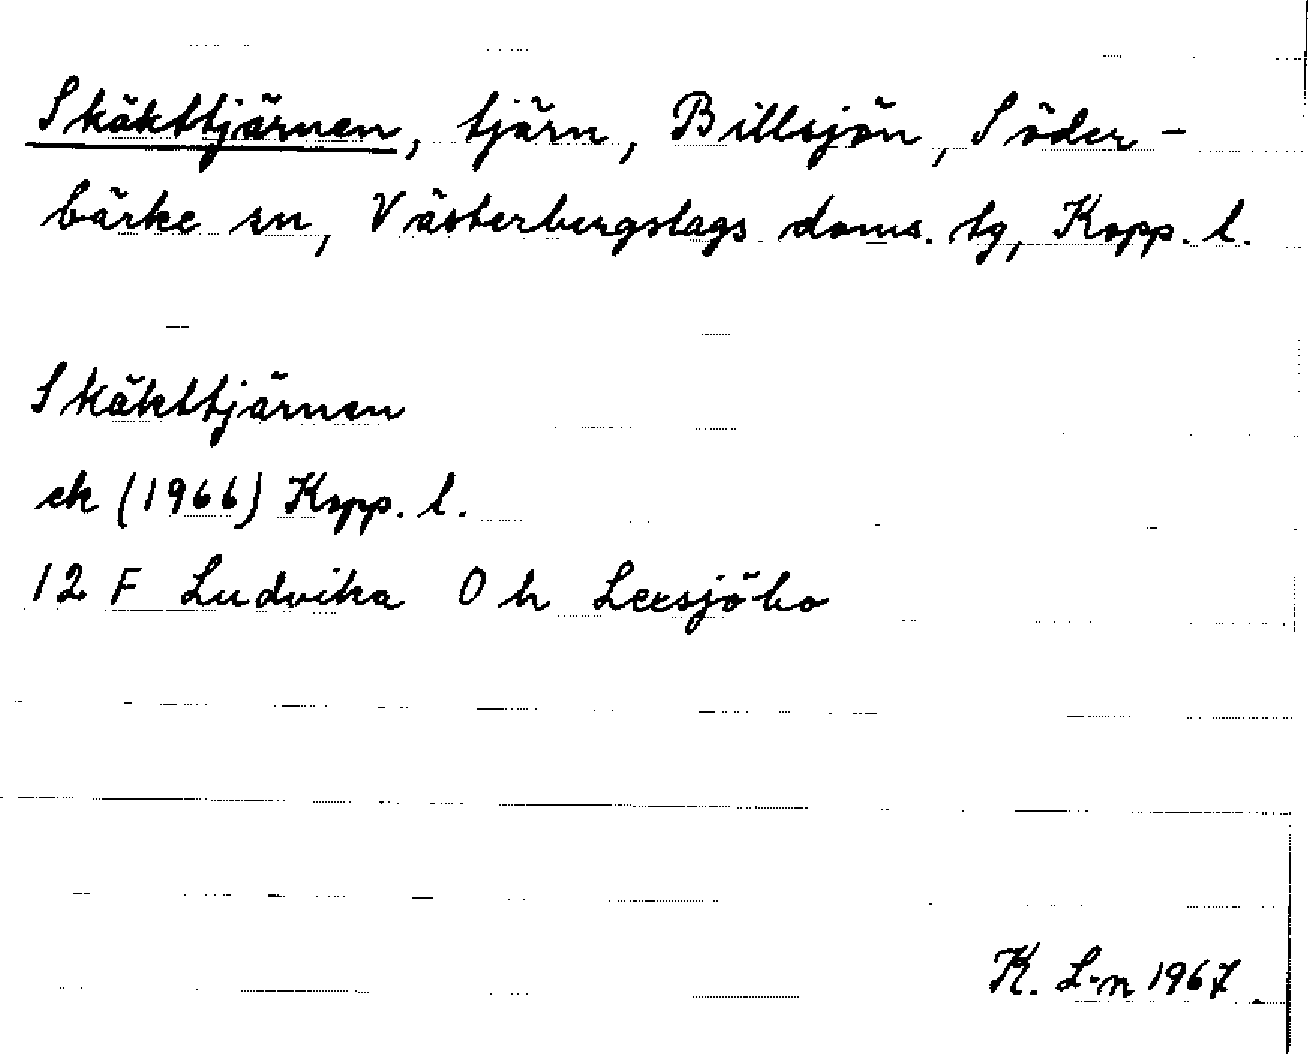 Skäkttjärnen, tjärn, Billsjön, Söder-
bärke sn, Västerbergslags doms. tg, Kopp. l.
Skäkttjärnen
ek (1966) Kopp. l.
12 F Ludvika 0 h Leesjöbo
K. L-n 1967